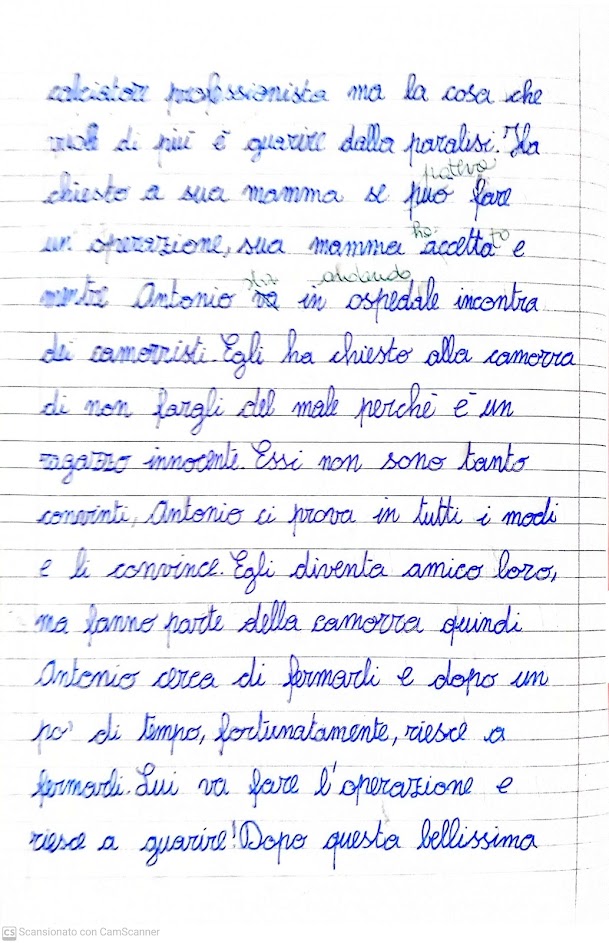 calciatore professionista ma la cosa che
vuole di più è guarire dalla paralisi. Ha
poteva
chiesto a sua mamma se può fare
ha to
un'operazione, sua mamma accetta e
sta andando
mentre Antonio va in ospedale incontra
dei camorristi. Egli ha chiesto alla camorra
di non fargli del male perché è un
ragazzo innocente. Essi non sono tanto
convinti, Antonio ci prova in tutti i modi
e li convince. Egli diventa amico loro,
ma fanno parte della camorra quindi
Antonio cerca di fermarli e dopo un
po' di tempo, fortunatamente, riesce a
fermarli. Lui va fare l'operazione e
riesce a guarire! Dopo questa bellissima
CS Scansionato con CamScanner